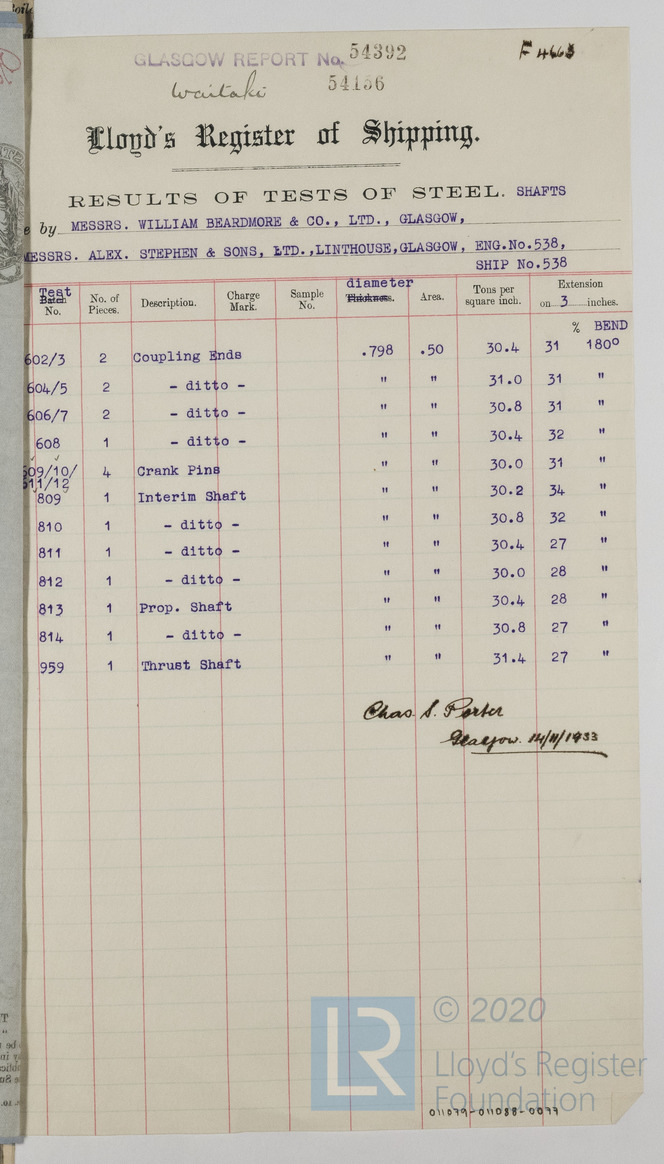 GLASGOW REPORT No. 54392
F 4663
Waitaki 54156
Lloyd's Register of Shipping.
RESULTS OF TESTS OF STEEL. SHAFTS
e by MESSRS. WILLIAM BEARDMORE & CO., LTD., GLASGOW,
MESSRS. ALEX. STEPHEN & SONS, LTD.,LINTHOUSE,GLASGOW, ENG.No.538,
SHIP No.538
Test Batch No. No. of Pieces. Description. Charge Mark. Sample No. diameter Thickness. Area. Tons per square inch. Extension on 3 inches.
% BEND
602/3 2 Coupling Ends .798 .50 30.4 31 180º
604/5 2 - ditto - " " 31.0 31 "
606/7 2 - ditto - " " 30.8 31 "
608 1 - ditto - " " 30.4 32 "
609/10/ 4 Crank Pins " " 30.0 31 "
611/12
809 1 Interim Shaft " " 30.2 34 "
810 1 - ditto - " " 30.8 32 "
811 1 - ditto - " " 30.4 27 "
812 1 - ditto - " " 30.0 28 "
813 1 Prop. Shaft " " 30.4 28 "
814 1 - ditto - " " 30.8 27 "
959 1 Thrust Shaft " " 31.4 27 "
Chas. S. Porter
Glasgow. 14/11/1933
LR © 2020
Lloyd's Register
Foundation
011079-011088-0077